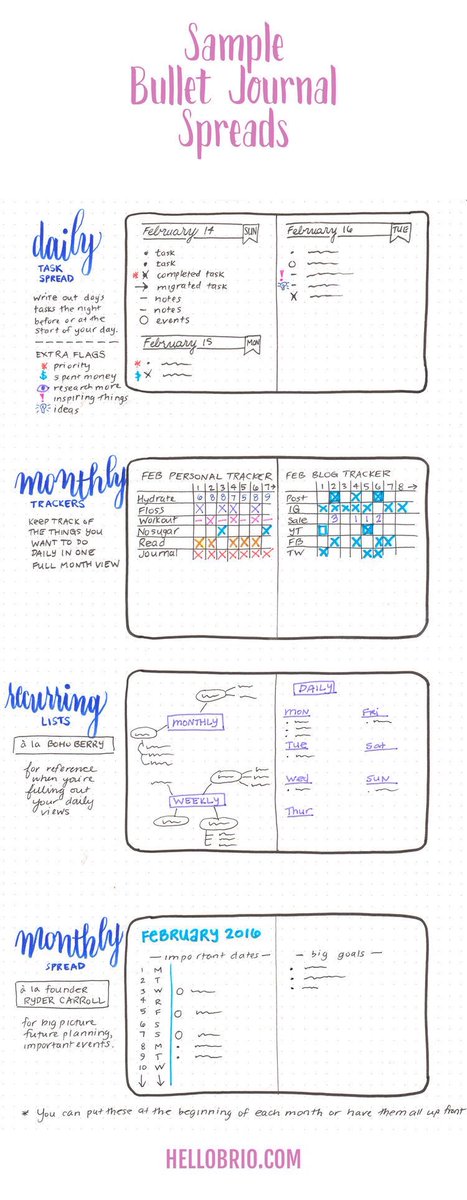 Sample
Bullet Journal
Spreads
daily
TASK
SPREAD
write out days
tasks the night
before or at the
start of your day.
EXTRA FLAGS
* priority
$ spent money
research more
! inspiring things
ideas
February 14 SUN
• task
• task
* x completed task
→ migrated task
– notes
– notes
O events
February 15 MON
February 16 TUE
monthly
TRACKERS
KEEP TRACK OF
THE THINGS YOU
WANT TO DO
DAILY IN ONE
FULL MONTH VIEW
FEB PERSONAL TRACKER
1 2 3 4 5 6 7 →
Hydrate 6 8 8 7 5 8 9
Floss
Workout
No sugar
Read
Journal
FEB BLOG TRACKER
1 2 3 4 5 6 7 8 →
Post
IG
Sale 3 1 1 2
YT
FB
TW
recurring
LISTS
à la BOHO BERRY
for reference
when you're
filling out
your daily
views
MONTHLY
WEEKLY
DAILY
Mon
Tue
Wed
Thur
Fri
Sat
Sun
monthly
SPREAD
à la founder
RYDER CARROLL
for big picture
future planning,
important events.
FEBRUARY 2016
— important dates —
1 M
2 T
3 W
4 R
5 F
6 S
7 S
8 M
9 T
10 W
— big goals —
* You can put these at the beginning of each month or have them all up front
HELLOBRIO.COM